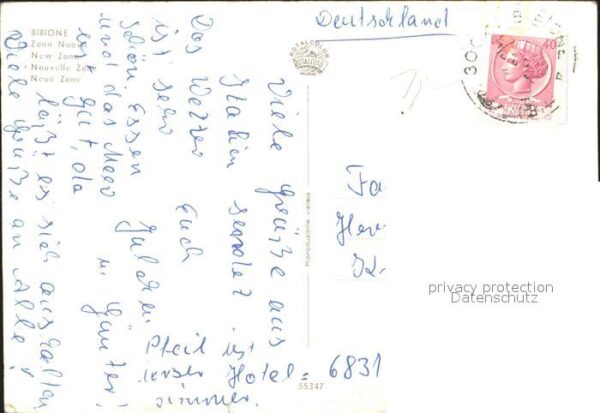 BIBIONE
Zona Nuova
New Zone
Nouvelle Zone
Neue Zone
ROTALCOLOR
ROTALFOTO
MILANO
Deutschland
Viele Grüße aus
Italien sendet Euch
Das Wetter
ist sehr
schön. Essen
und das Meer
ist gut, da
läßt es sich aushalten
Viele Grüße an Alle!
u. Günter!
Pfeil ist
unser Hotel-
zimmer.
Riproduzione vietata
55347
Fa
Her
K
6831
privacy protection
Datenschutz